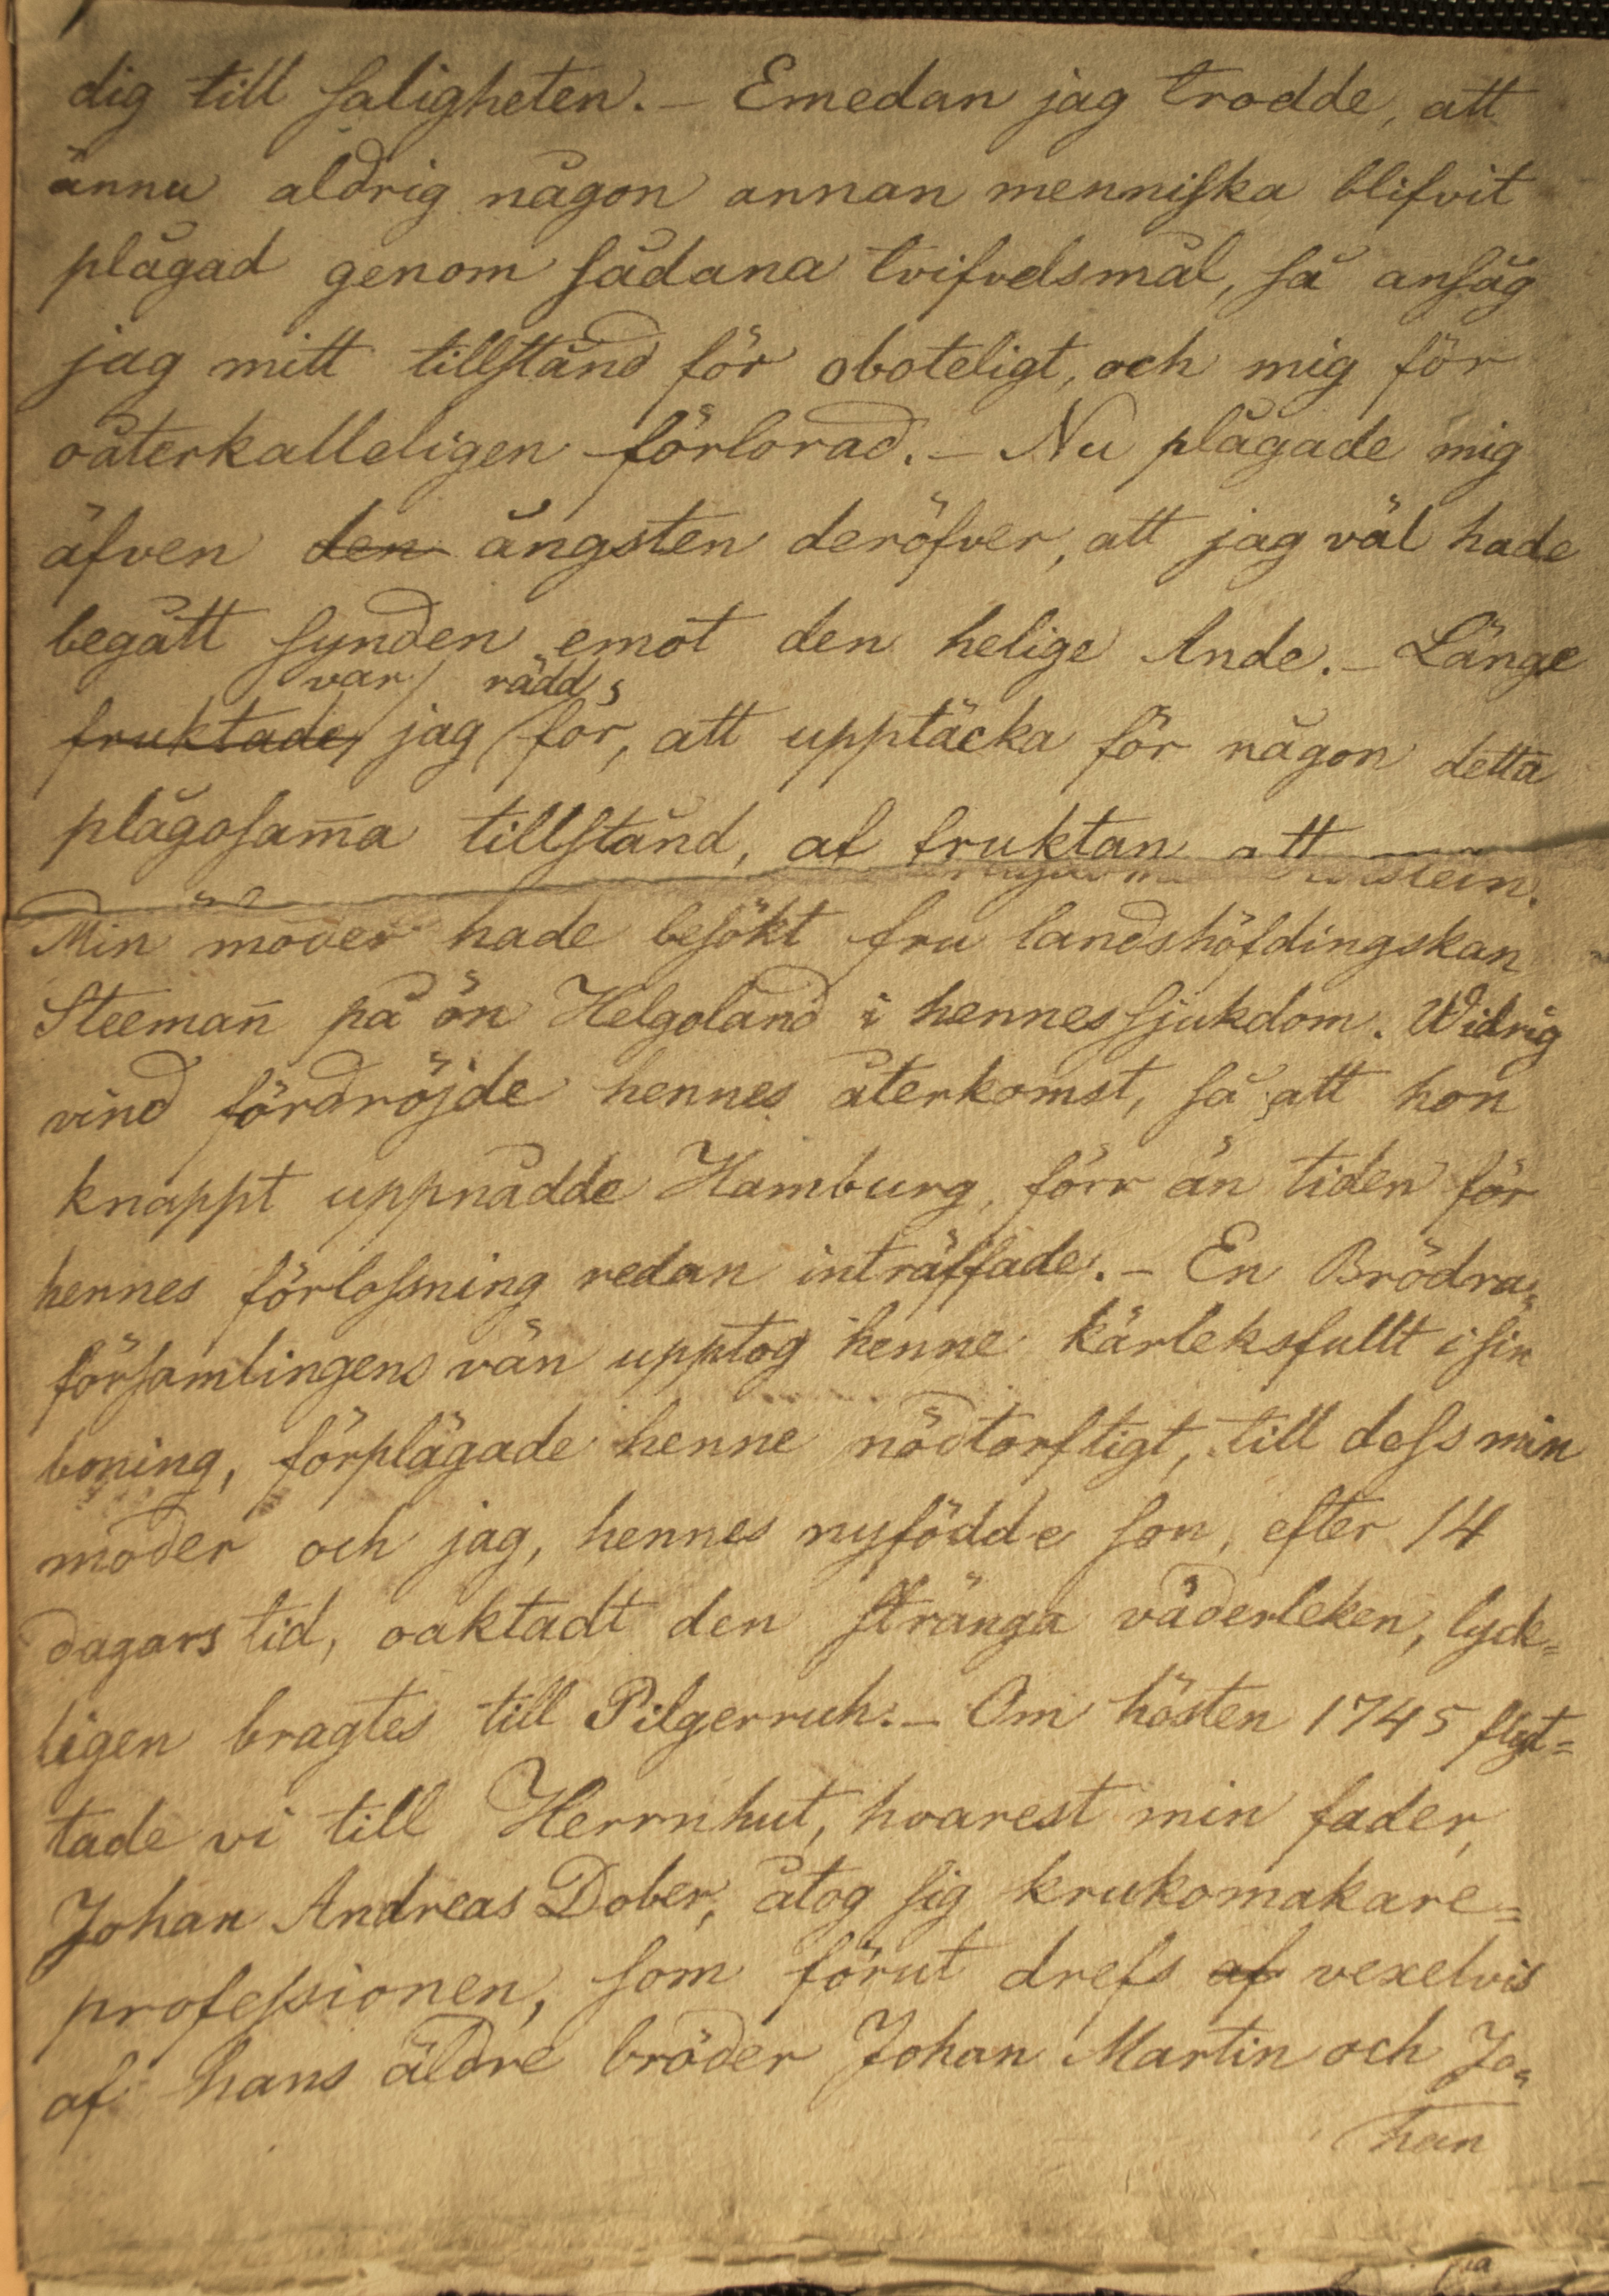 dig till saligheten. – Emedan jag trodde, att
ännu aldrig någon annan menniska blifvit
plågad genom sådana tvifvelsmål, så ansåg
jag mitt tillstånd för oboteligt, och mig för
oåterkalleligen förlorad. – Nu plågade mig
äfven den ångsten deröfver, att jag väl hade
begått synden emot den helige Ande. – Länge
var rädd
fruktade jag för, att upptäcka för någon detta
plågosam̄a tillstånd, af fruktan att
Min moder hade besökt fru landshöfdingskan
Steeman̄ på ön Helgoland i hennes sjukdom. Widrig
vind fördröjde hennes återkomst, så att hon
knappt uppnådde Hamburg, förr än tiden för
hennes förlossning redan inträffade. – En Brödra=
församlingens vän upptog henne kärleksfullt i sin
boning, förplägade henne nödtorftigt, till dess min
moder och jag, hennes nyfödde son, efter 14
dagars tid, oaktadt den stränga väderleken, lyck=
ligen bragtes till Pilgerruh. – Om hösten 1745 flyt=
tade vi till Herrnhut, hvarest min fader,
Johan Andreas Dober, åtog sig krukomakare=
professionen, som förut drefs af vexelvis
af hans äldre bröder Johan Martin och Jo=
han